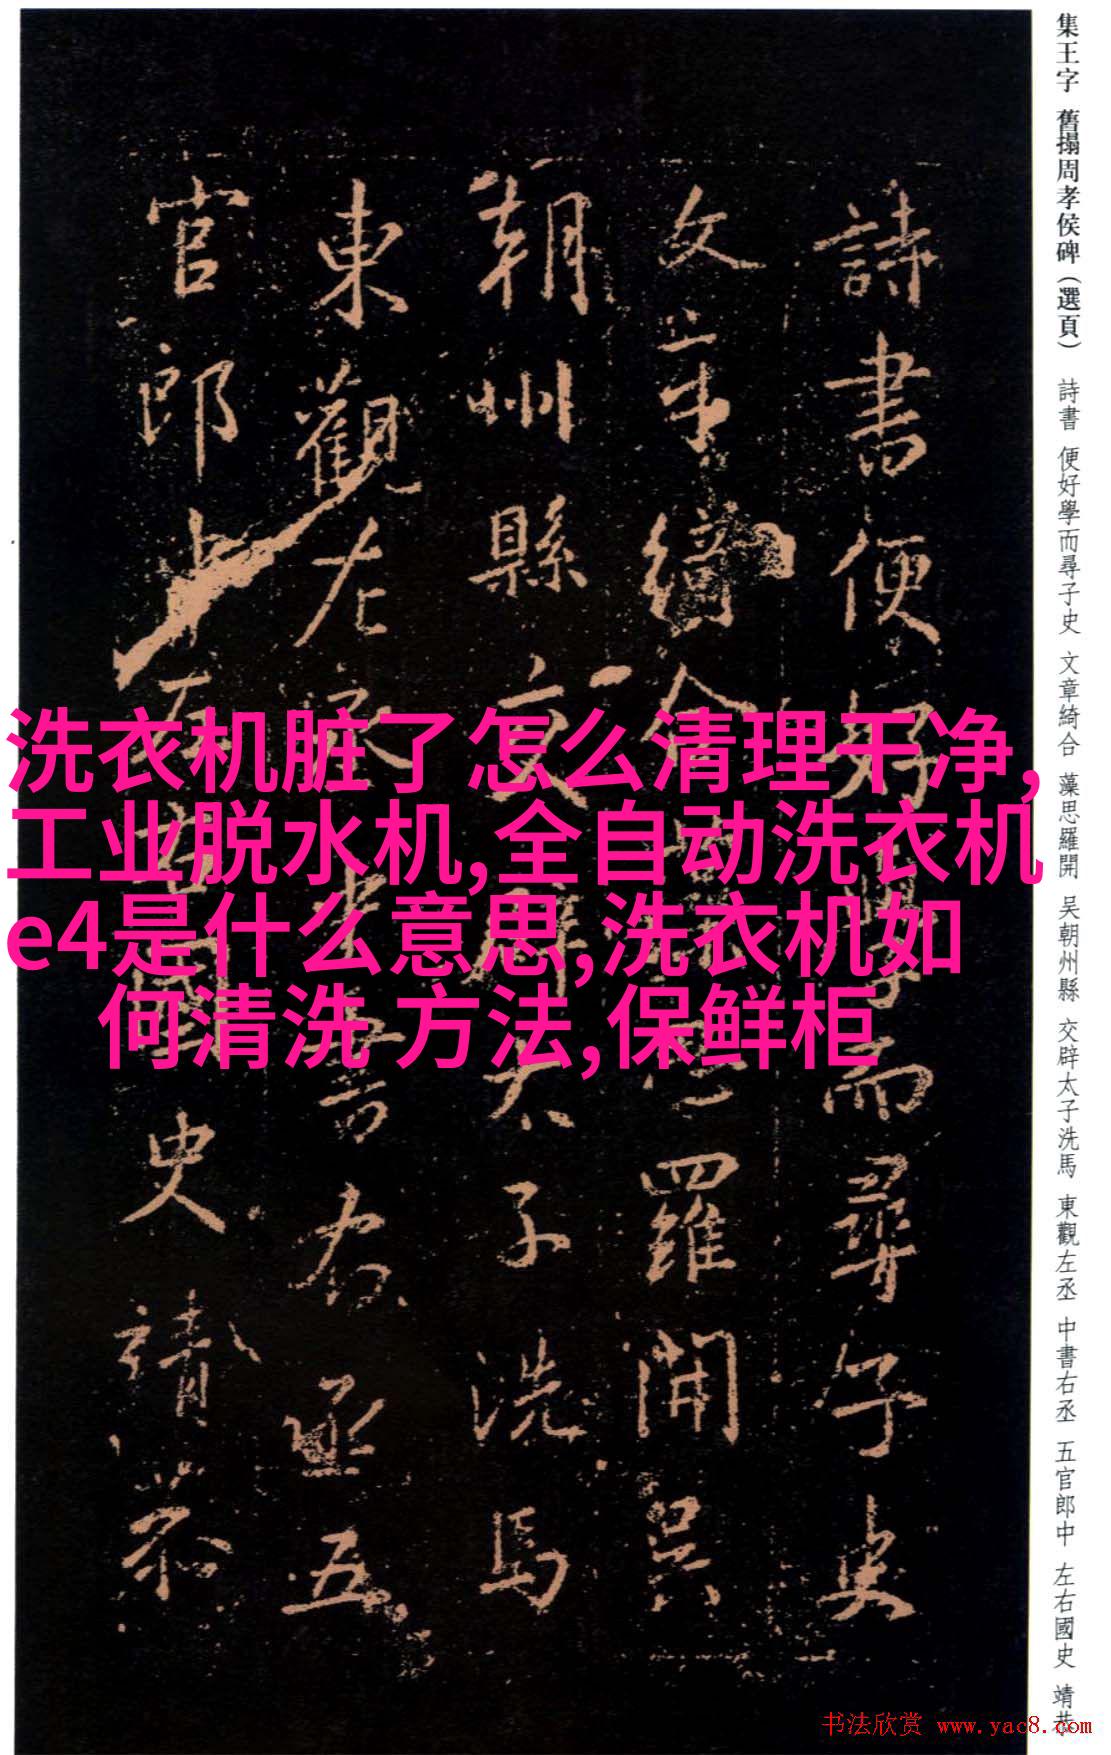 集王字 舊搨周孝侯碑(選頁) 詩書 便好學而尋子史 文章綺合 藻思羅開 吴朝州縣 交辟太子洗馬 東觀左丞 中書右丞 五官郎中 左右國史 靖恭
詩書便好學而尋子史
文章綺合藻思羅開吴
朝州縣交辟太子洗馬
東觀左丞中書右丞五
官郎中左右國史靖恭
洗衣机脏了怎么清理干净,
工业脱水机,全自动洗衣机
e4是什么意思,洗衣机如
何清洗 方法,保鲜柜
书法欣赏 www.yac8.com